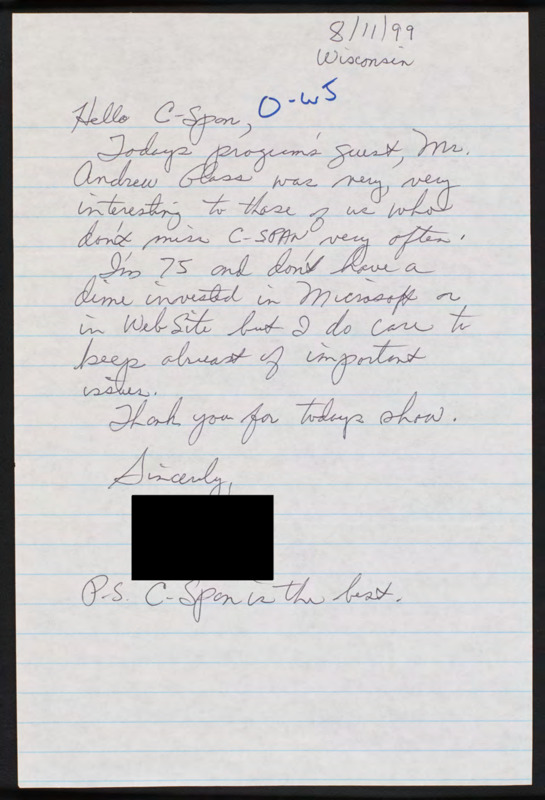 8/11/99
Wisconsin
Hello C-Span, O-WJ
Todays program's guest, Mr.
Andrew Glass was very, very
interesting to those of us who
don't miss C-SPAN very often.
I'm 75 and don't have a
dime invested in Microsoft or
in Web Site but I do care to
keep abreast of important
issues.
Thank you for todays show.
Sincerly,
P.S. C-Span is the best.